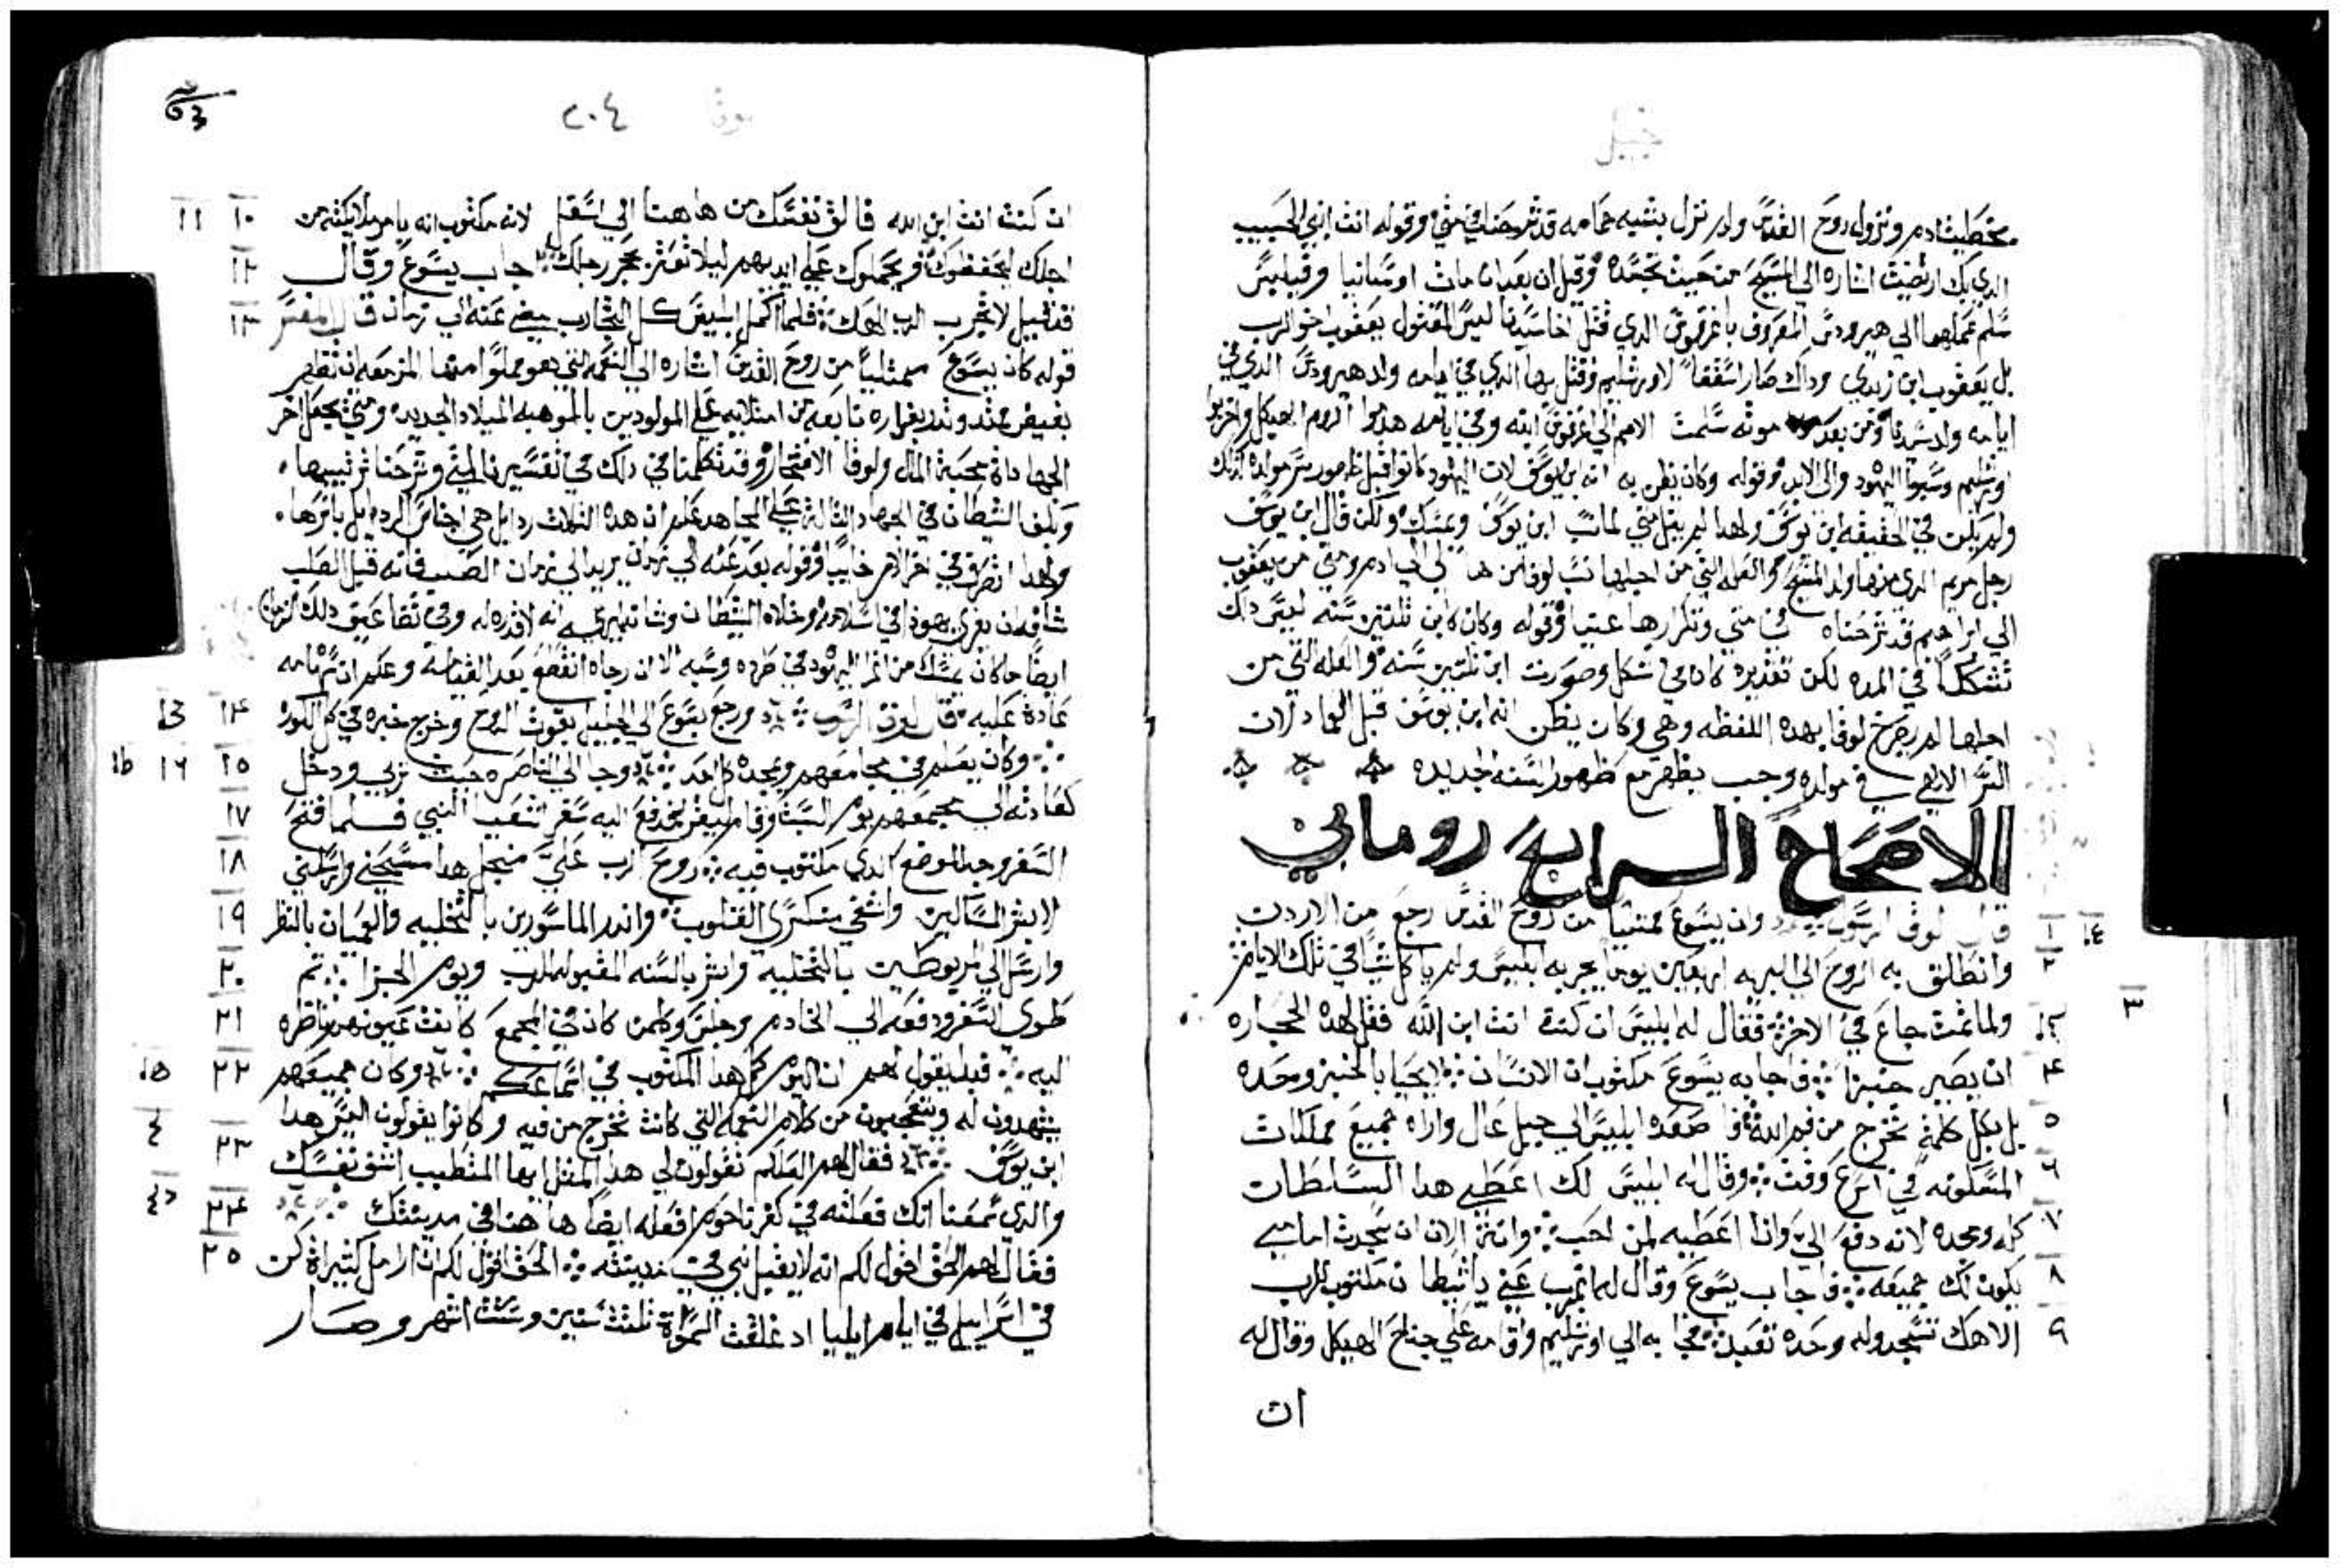 بخطيت ادم ونزول روح القدس ولم نزل بشبه حمامه قد شرحناه في متي وقوله انت ابني الحبيب
الدي بك ارتضيت اشاره الي المسيح من حيث تجسده وقيل ان بعد ان مات اوسانيا وفيلبس
سلم عملهما الي هيرودس المعروف باغريوس الدي قتل اخا سيدنا ليس المقتول يعقوب اخو الرب
بل يعقوب ابن زبدي وداك صار اسقفا لاورشليم وقتل بها الدي في ايامه ولد هيرودس الدي في
ايامه ولد سيدنا ومن بعد موته سلمت الامم الي اغريوس ابنه وفي ايامه هدموا الروم الهيكل واخربوا
اورشليم وسبوا اليهود والي الابد وقوله وكان يظن به انه ابن يوسف لان اليهود كانوا قبل ظهور سر مولده كدلك
ولم يكن في الحقيقه ابن يوسف ولهدا لم يقل متي لما نسب ابن يوسف ويمسك ولكن قال ابن يوسف
رجل مريم الدي منها ولد المسيح والعله التي من اجلها نسب لوقا من ها الي الي ادم ومتي من يعقوب
الي ابراهيم قد شرحناه في متي وتكرارها عبثا وقوله وكان كابن ثلثين سنه ليس داك
تشككا في المده لكن تقديره كان في شكل وصورت ابن ثلثين سنه والعله التي من
اجلها لم يصرح لوقا بهده اللفظه وهي وكان يظن انه ابن يوسف قبل العماد لان
السر الالهي في مولده وجب يظهر مع ظهور السنه الجديده
الاصحاح الرابع روماني
قال لوقا الرسول وان يسوع ممتليا من روح القدس رجع من الاردن ١
وانطلق به الروح الي البريه اربعين يوما يجربه ابليس ولم ياكل شيا في تلك الايام ٢
ولما تمت جاع في الاخر فقال له ابليس ان كنت انت ابن الله فقل لهده الحجاره ٣
ان يصير خبزا فاجابه يسوع مكتوب ان الانسان لا يحيا بالخبز وحده ٤
بل بكل كلمة تخرج من فم الله فاصعده ابليس الي جبل عال واراه جميع مملكات ٥
المسكونه في اسرع وقت وقال له ابليس لك اعطي هدا السلطان ٦
كله ومجده لانه دفع الي وانا اعطيه لمن احب وانت الان ان سجدت امامي ٧
يكون لك جميعه فاجاب يسوع وقال له اغرب عني ياشيطان مكتوب للرب ٨
الاهك تسجد وله وحده تعبد فجا به الي اورشليم واقامه علي جناح الهيكل وقال له ٩
ان
٢٠٤
ان كنت انت ابن الله فالق نفسك من هاهنا الي اسفل لانه مكتوب انه يامر ملايكته من ١٠ ١١
اجلك ليحفظوك ويحملوك علي ايديهم ليلا تعتر بحجر رجلك اجاب يسوع وقال ١٢
فقد قيل لا تجرب الرب الهك فلما اكمل ابليس كل التجارب مضي عنه الي زمان قال المفسر ١٣
قوله كان يسوع ممتليا من روح القدس اشاره الي النعمه التي هو مملوا منها المزمعه ان تظهر
بفيض ممتد وتدبغزاره تابعه من امتلايه علي المولودين بالموهبه الميلاد الجديد ومتي يجعل اخر
الجهاداة محبة المال ولوقا الافتخار وقد تكلمنا في دلك في تفسيرنا المتي وشرحنا ترتيبها
وبلغ الشيطان في الجهاد الثالث علي المجاهد علم ان هده الثلاث ردايل هي اجناس الردايل باسرها
ولهدا انصرف في اخر الامر خايبا وقوله بعد عنه الي زمان يريد الي زمان الصلب فانه قبل الصلب
شاقه ان يغري يهودا في اسلامه وخلاه الشيطان وشا ليري انه لا قدره له وفي تضاعيف دلك الزمان
ايضا ما كان يمسك من اغرا اليهود في طرده وسبه الا ان رجاه انقطع بعد القيامه وعلم ان تم تامه
عادة عليه قال لوقا الرسول ورجع يسوع الي الجليل بقوت الروح وخرج خبره في كل الكور ١٤
وكان يعلم في مجامعهم ويمجده كل احد وجا الي الناصره حيث تربي ودخل ١٥ ١٦
كعادته الي مجمعهم يوم السبت وقام ليقرا فدفع اليه سفر اشعيا النبي فلما فتح ١٧
السفر وجد الموضع الدي مكتوب فيه روح الرب علي من اجل هدا مسحني وارسلني ١٨
لابشر المساكين واشفي منكسري القلوب واندر الماسورين بالتخليه والعميان بالنظر ١٩
وارسل الي المربوطين بالتخليه وابشر بالسنه المقبوله للرب ويوم الجزا ثم ٢٠
طوي السفر ودفعه الي الخادم وجلس وكلمن كان في المجمع كانت عيونهم ناظره ٢١
اليه فبدا يقول لهم ان اليوم كمل هدا المكتوب في اسماعكم وكان جميعهم ٢٢
يشهدون له ويتعجبون من كلام النعمه التي كانت تخرج من فيه وكانوا يقولون اليس هدا
ابن يوسف فقال لهم لعلكم تقولون لي هدا المثل ايها المتطبب اشف نفسك ٢٣
والدي سمعنا انك فعلته في كفرناحوم افعله ايضا هاهنا في مدينتك ٢٤
فقال لهم الحق اقول لكم انه لا يقبل نبي في مدينته الحق اقول لكم ان ارامل كثيراة كن ٢٥
في اسراييل في ايام ايليا اد غلقت السماة ثلث سنين وستت اشهر وصار